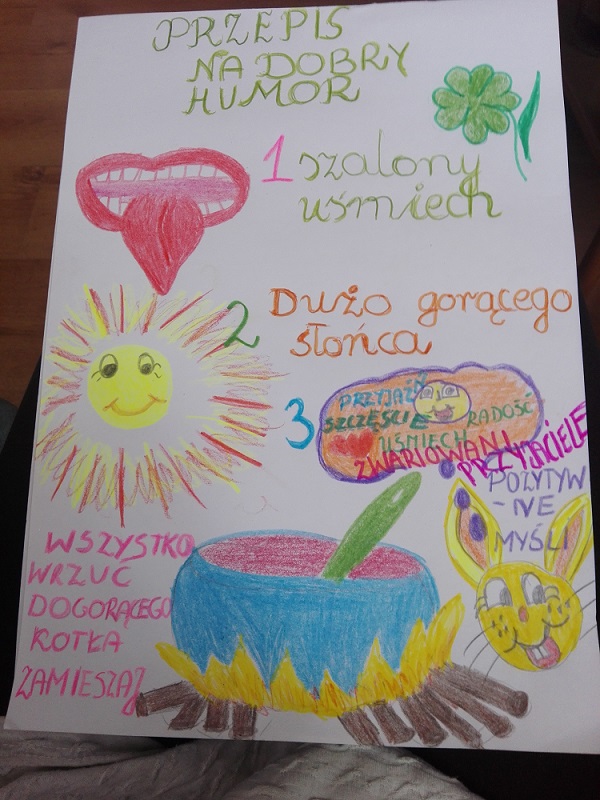 PRZEPIS
NA DOBRY
HUMOR
1 szalony
uśmiech
2 Dużo gorącego
słońca
3
PRZYJAŹŃ
SZCZĘŚCIE RADOŚĆ
UŚMIECH
ZWARIOWANI PRZYJACIELE
POZYTYW
-NE
MYŚLI
WSZYSTKO
WRZUĆ
DOGORĄCEGO
KOTŁA
ZAMIESZAJ